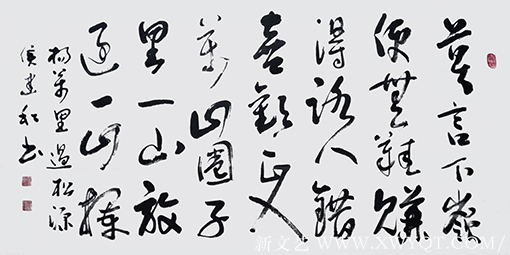 莫言下嶺
便無難賺
得路人錯
喜歡正入
萬山圈子
里一山放
過一山攔
楊萬里過松源
和书
新文艺 WWW.XWYQT.COM